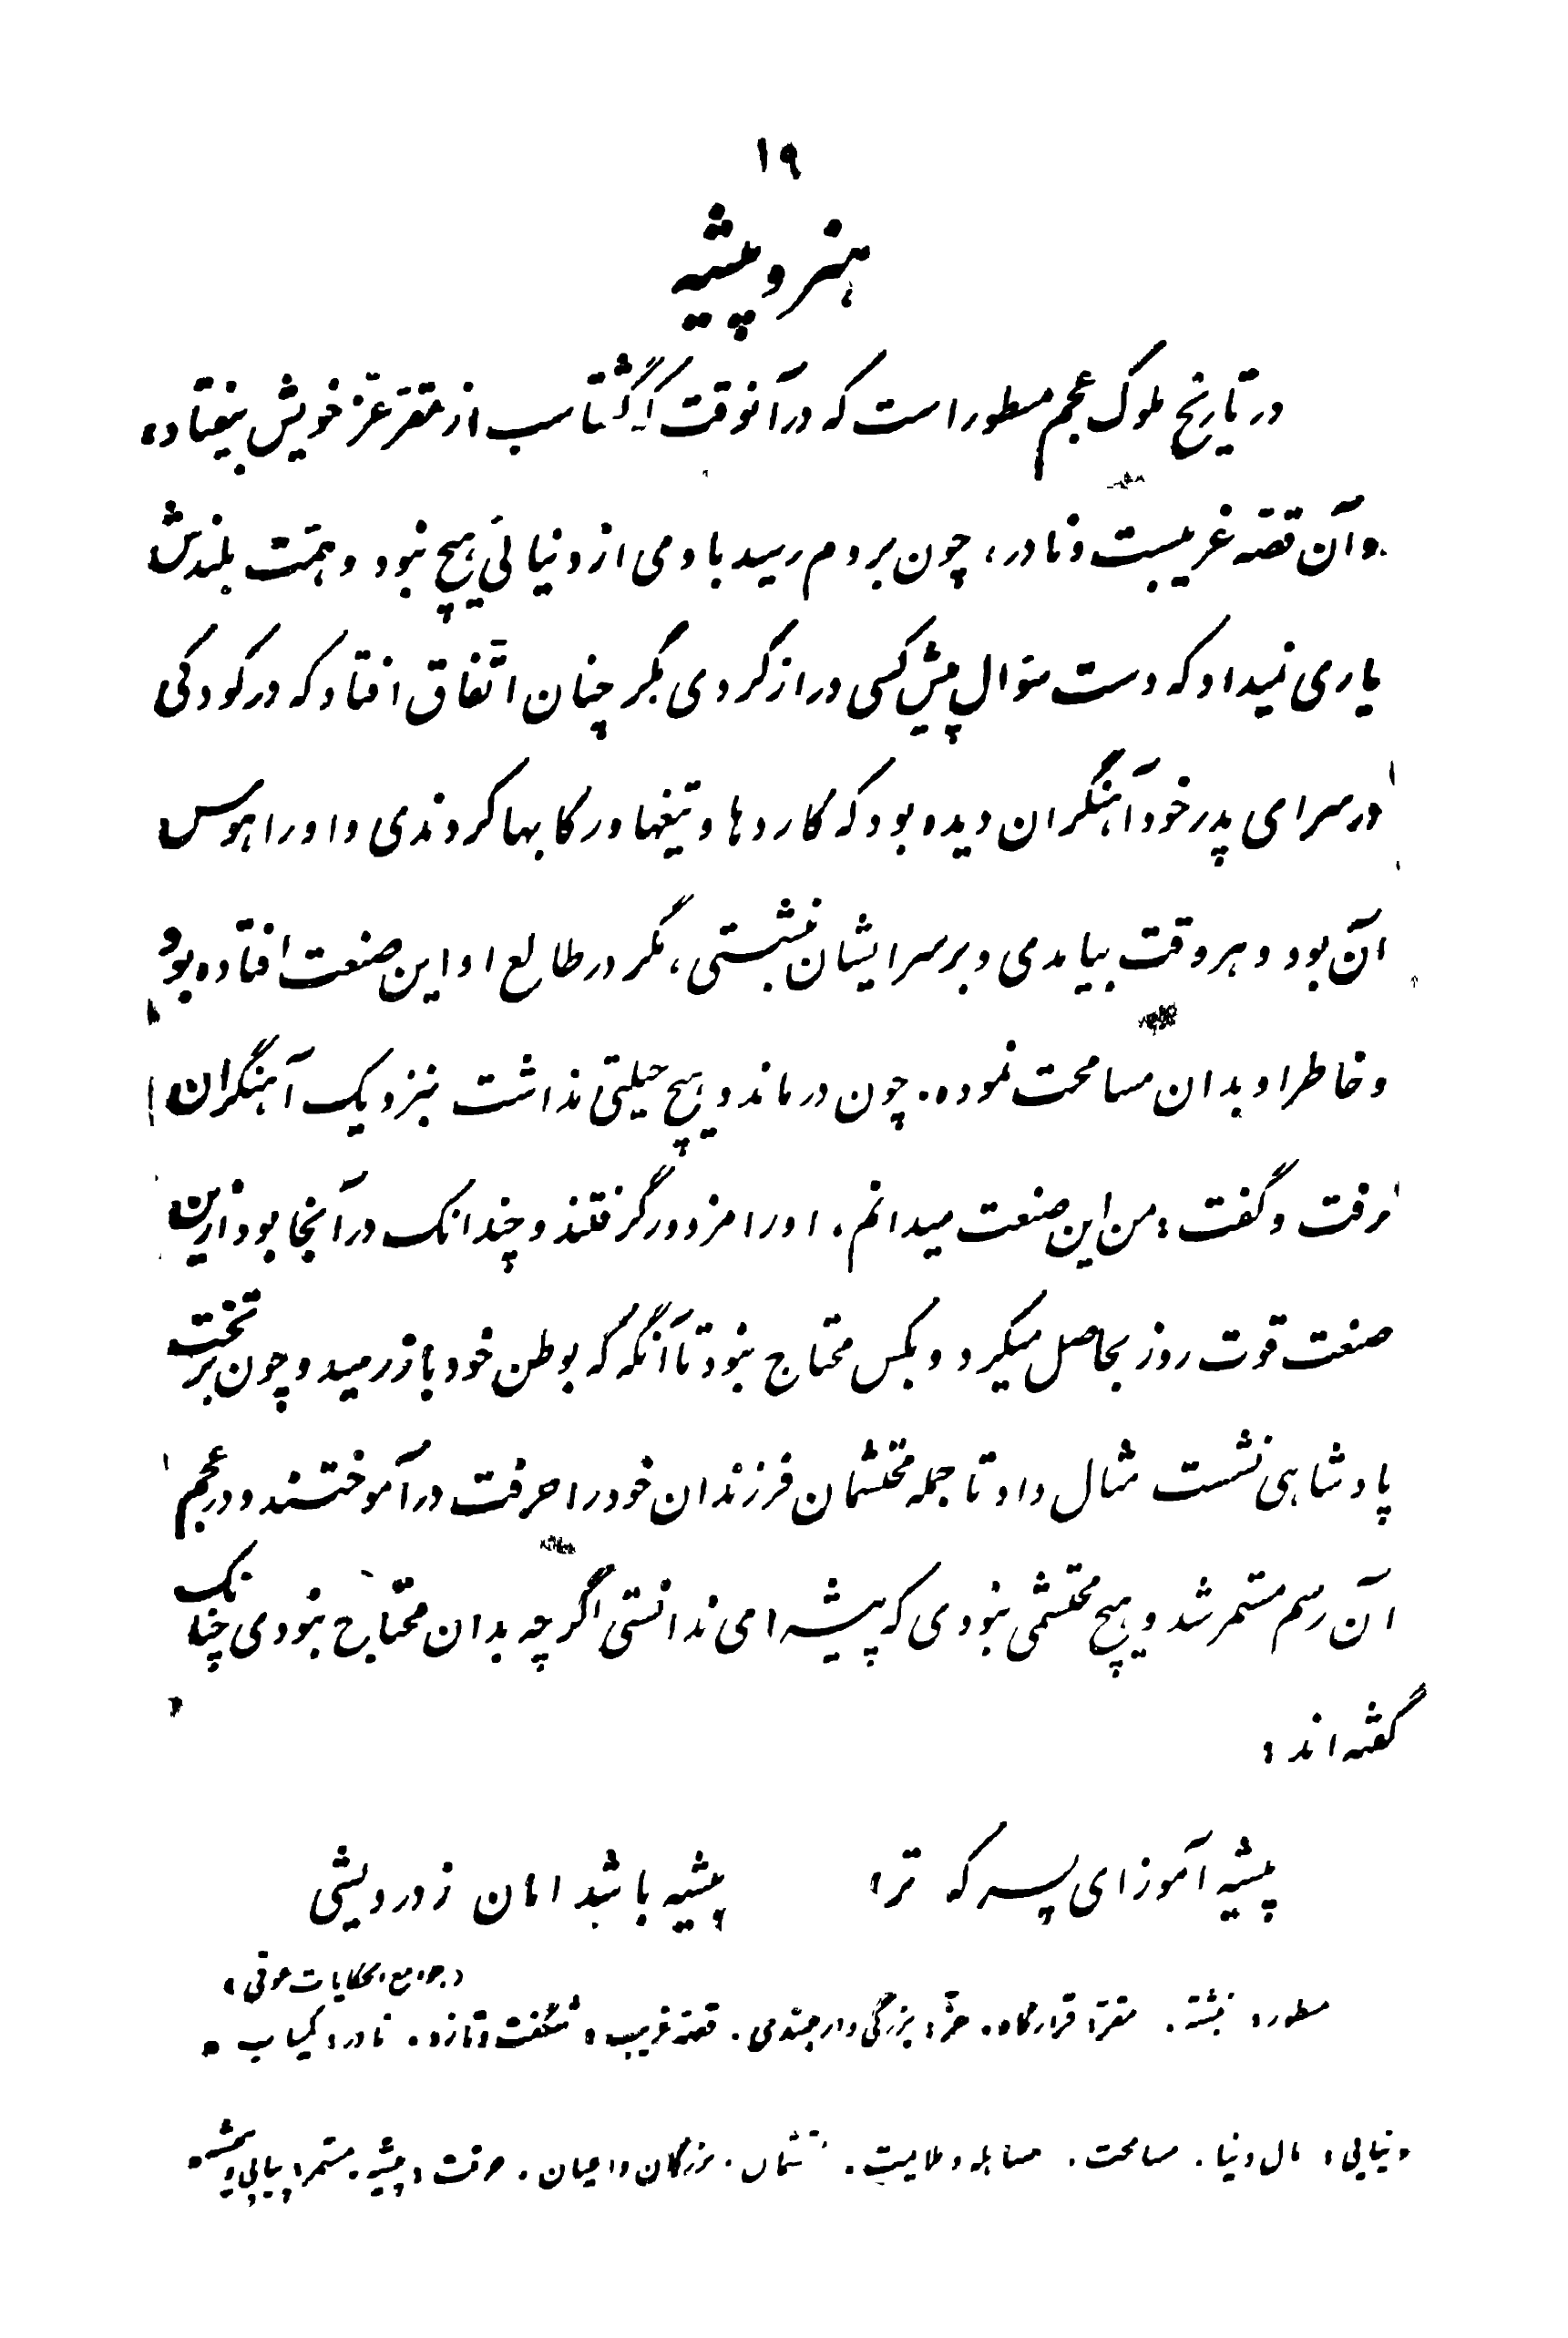 ۱۹
هنر و پیشه
در تاریخ ملوک عجم مسطور است که در آنوقت که گشتاسب از مقر عز خویش بیفتاده
و آن قصه غریبست و نادر، چون بروم رسید با وی از دنیائی هیچ نبود و همت بلندش
یاری نمیداد که دست سؤال پیش کسی دراز کردی مگر چنان اتفاق افتاد که در کودکی
در سرای پدر خود آهنگران دیده بود که کاردها و تیغها و رکابها کردندی و او را هوس
آن بود و هر وقت بیامدی و بر سر ایشان بنشستی، مگر در طالع او این صنعت افتاده بود
و خاطر او بدان مسامحت نموده. چون درماند و هیچ حیلتی نداشت بنزدیک آهنگران
رفت و گفت: من این صنعت میدانم. او را مزدور گرفتند و چندانک در آنجا بود ازین
صنعت قوت روز بحاصل میکرد و بکس محتاج نبود تا آنگه که بوطن خود باز رسید و چون بر تخت
پادشاهی نشست مثال داد تا جمله محتشمان فرزندان خود را حرفت درآموختند و در عجم
آن رسم مستمر شد و هیچ محتشمی نبودی که پیشه‌ای ندانستی اگرچه بدان محتاج نبودی چنانک
گفته‌اند:
پیشه آموز ای پسر که ترا پیشه باشد امان ز درویشی
(جوامع الحکایات عوفی)
مسطور: نبشته. مقر: قرارگاه. عز: بزرگی و ارجمندی. قصه غریب: شگفت و تازه. نادر: کمیاب.
دنیایی: مال دنیا. مسامحت. مساهله و ملایمت. بزرگان و اعیان. حرفت: پیشه. مستمر: پیاپی و